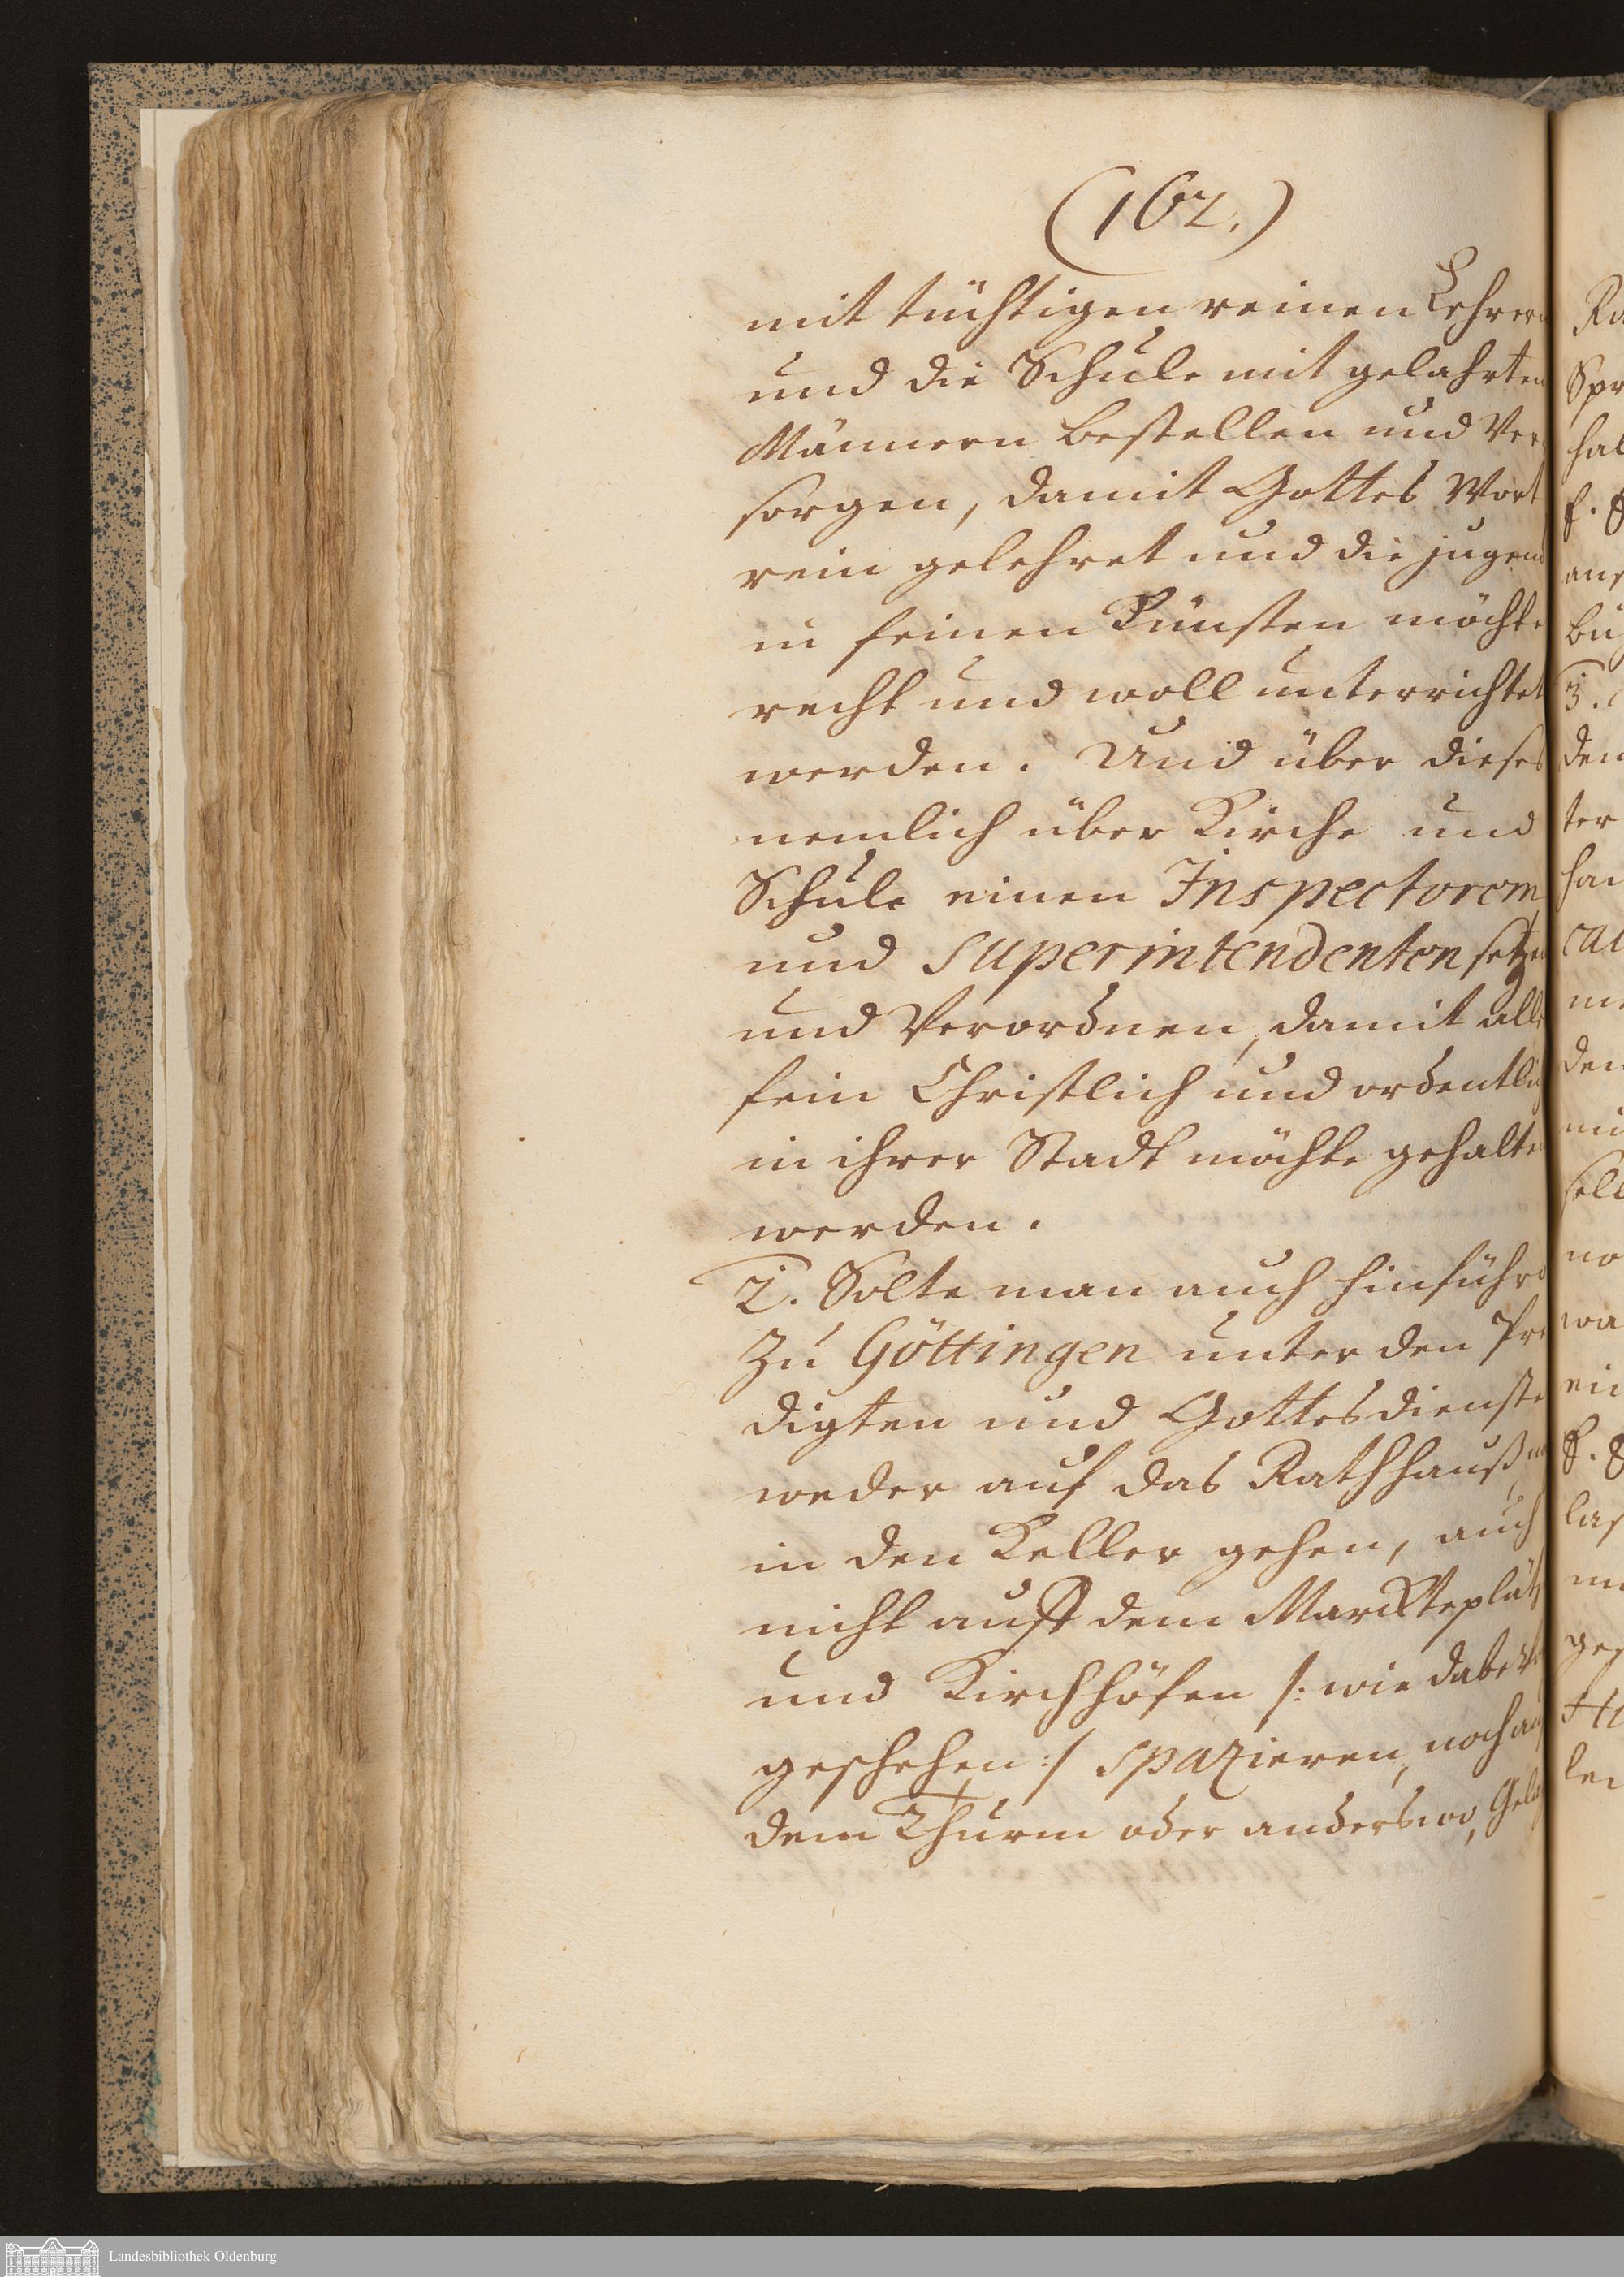 (162.)
mit tüchtigen reinen Lehrern
und die Schule mit gelahrten
Männern bestellen und Ver
sorgen, damit Gottes Wort
rein gelehret und die jugend
in feinen Künsten möchte
recht und woll unterrichtet
werden. Und über dieses
nemlich über Kirche und
Schule einen Inspectorem
und Superintendenten setzen
und Verordnen, damit alles
fein Christlich und ordentlich
in ihrer Stadt möchte gehalten
werden.
2. Solte man auch hinführo
Zu Göttingen unter den Pre
digten und Gottesdienste
weder auf das Rathhauß,
in den Keller gehen, auch
nicht auff dem Marckteplätz
und Kirchhöfen /: wie dabe
geschehen :/ spazieren, noch auf
dem Thurm oder anderswo,
Spr
hal
den
ter
no
wa
Landesbibliothek Oldenburg